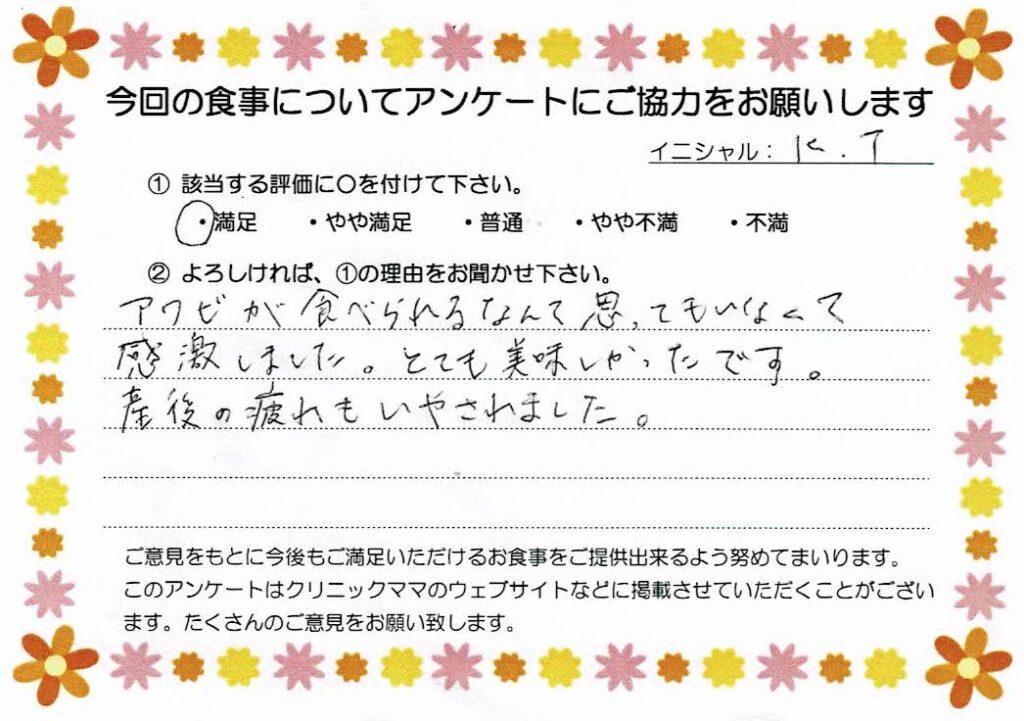 今回の食事についてアンケートにご協力をお願いします
イニシャル： K.T
① 該当する評価に〇を付けて下さい。
・満足 ・やや満足 ・普通 ・やや不満 ・不満
② よろしければ、①の理由をお聞かせ下さい。
アワビが食べられるなんて思ってもいなくて
感激しました。とても美味しかったです。
産後の疲れもいやされました。
ご意見をもとに今後もご満足いただけるお食事をご提供出来るよう努めてまいります。
このアンケートはクリニックママのウェブサイトなどに掲載させていただくことがござい
ます。たくさんのご意見をお願い致します。